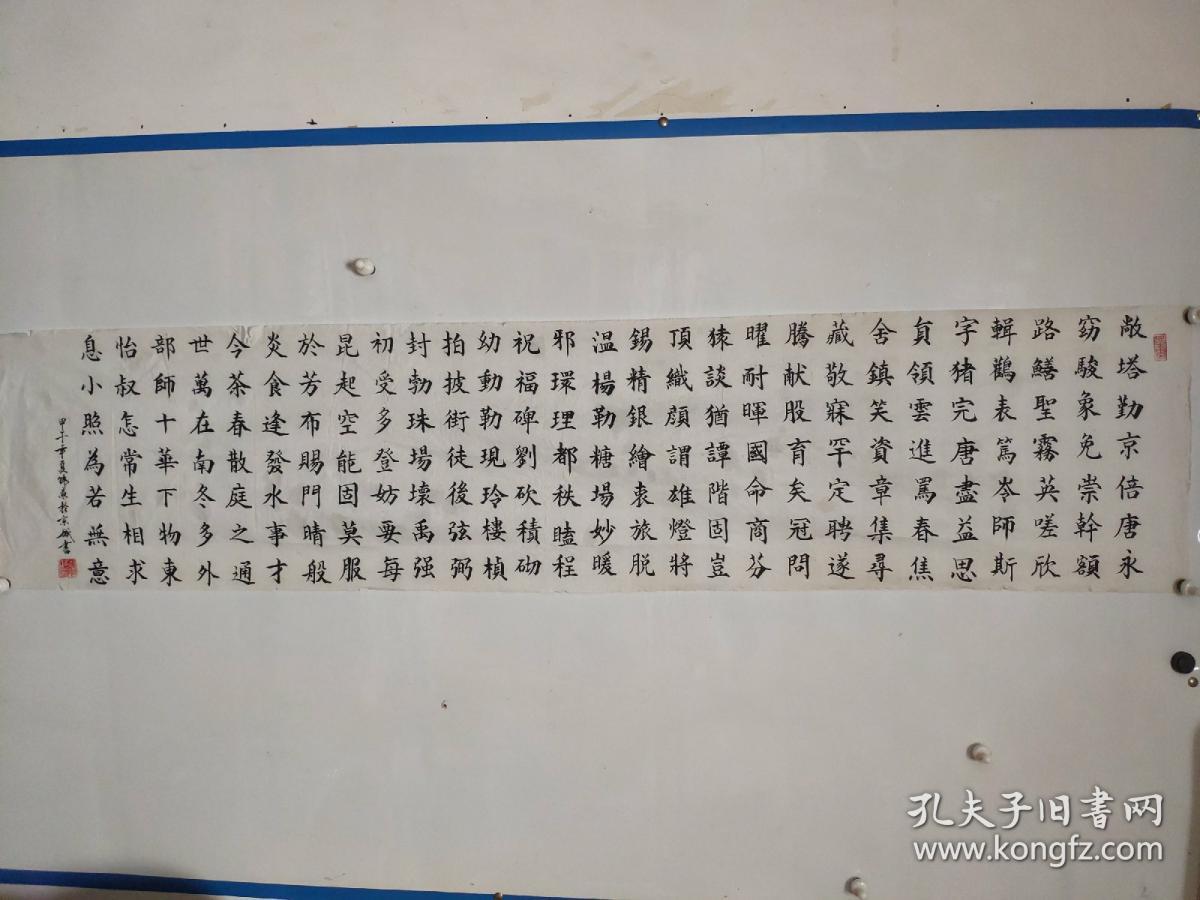 敞塔勤京倍唐永
窈駿象免崇幹額
路鱔聖霧英嗟欣
輯鸛表篤岑師斯
字猪完唐盡益思
貞領雲進罵春焦
舍鎮笑資章集尋
藏敬寐罕定聘遂
騰献股育矣冠問
曜耐暉國命商芬
猿談猶譚階固豈
頂織顔謂雄燈將
錫精銀繪袁旅脱
温楊勒糖場妙暖
邪環理都秩瞌程
祝福碑劉砍積砌
幼動勒現玲樓楨
拍披街徒後弦弼
封勃珠場壞禹强
初受多登妨要每
昆起空能固莫服
於芳布賜門晴般
炎食逢發水事才
今茶春散庭之通
世萬在南冬多外
部師十華下物東
怡叔怎常生相求
息小照為若無意
甲午年夏於京城書
孔夫子旧书网
www.kongfz.com